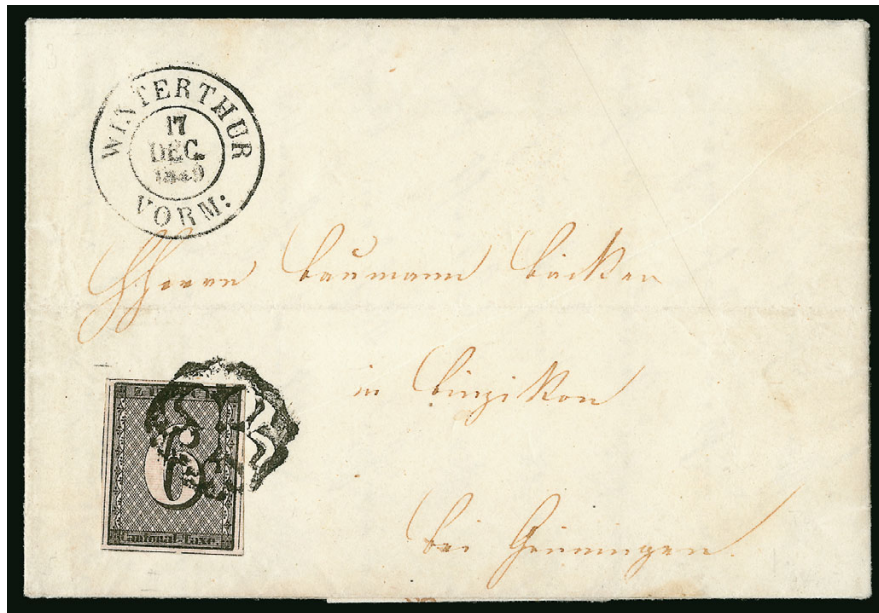 WINTERTHUR
17
DEC.
1849
VORM:
Herrn Baumann Bäcker
in Binzikon
bei Grüningen.
6
Cantonal-Taxe.